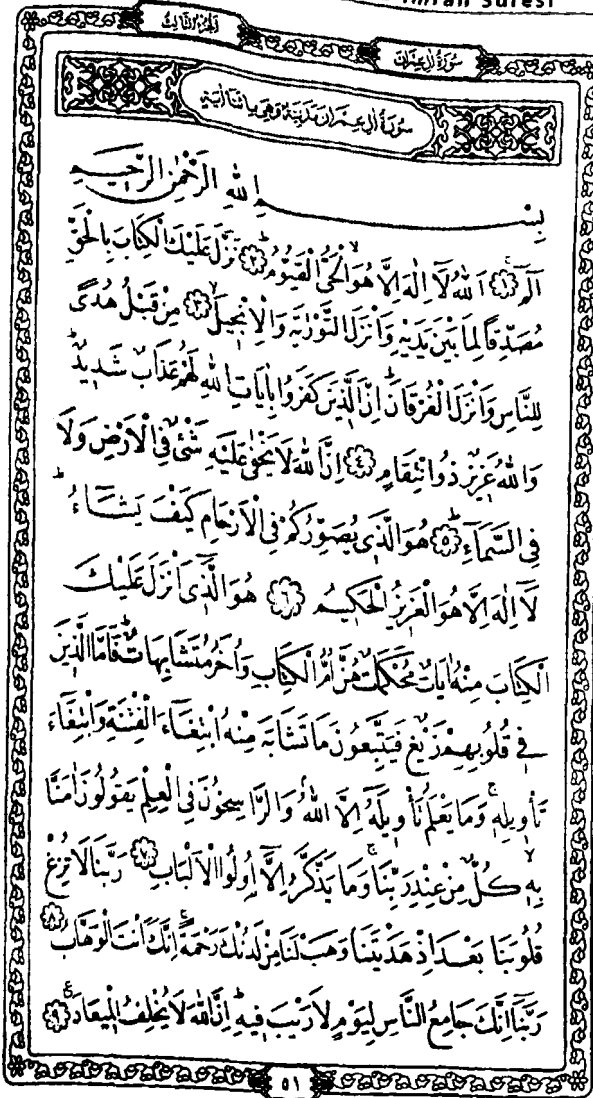 İmran Suresi
اَلْجُزْءُ الثَّالِثُ
سُورَةُ اٰلِ عِمْرَانَ
سُورَةُ اٰلِ عِمْرَانَ مَدَنِيَّةٌ وَهِيَ مِائَتَا اٰيَةٍ
بِسْمِ اللهِ الرَّحْمٰنِ الرَّحِيمِ
الٓمٓ ﴿١﴾ اَللهُ لَٓا اِلٰهَ اِلَّا هُوَ الْحَيُّ الْقَيُّومُ ﴿٢﴾ نَزَّلَ عَلَيْكَ الْكِتَابَ بِالْحَقِّ
مُصَدِّقًا لِمَا بَيْنَ يَدَيْهِ وَاَنْزَلَ التَّوْرٰيةَ وَالْاِنْجِيلَ ﴿٣﴾ مِنْ قَبْلُ هُدًى
لِلنَّاسِ وَاَنْزَلَ الْفُرْقَانَ اِنَّ الَّذِينَ كَفَرُوا بِاٰيَاتِ اللهِ لَهُمْ عَذَابٌ شَدِيدٌ
وَاللهُ عَزِيزٌ ذُو انْتِقَامٍ ﴿٤﴾ اِنَّ اللهَ لَا يَخْفٰى عَلَيْهِ شَيْءٌ فِي الْاَرْضِ وَلَا
فِي السَّمَٓاءِ ﴿٥﴾ هُوَ الَّذِي يُصَوِّرُكُمْ فِي الْاَرْحَامِ كَيْفَ يَشَٓاءُ
لَٓا اِلٰهَ اِلَّا هُوَ الْعَزِيزُ الْحَكِيمُ ﴿٦﴾ هُوَ الَّذِٓي اَنْزَلَ عَلَيْكَ
الْكِتَابَ مِنْهُ اٰيَاتٌ مُحْكَمَاتٌ هُنَّ اُمُّ الْكِتَابِ وَاُخَرُ مُتَشَابِهَاتٌ فَاَمَّا الَّذِينَ
فِي قُلُوبِهِمْ زَيْغٌ فَيَتَّبِعُونَ مَا تَشَابَهَ مِنْهُ ابْتِغَٓاءَ الْفِتْنَةِ وَابْتِغَٓاءَ
تَأْوِيلِهِ وَمَا يَعْلَمُ تَأْوِيلَهُٓ اِلَّا اللهُ وَالرَّاسِخُونَ فِي الْعِلْمِ يَقُولُونَ اٰمَنَّا
بِهِ كُلٌّ مِنْ عِنْدِ رَبِّنَا وَمَا يَذَّكَّرُ اِلَّٓا اُولُوا الْاَلْبَابِ ﴿٧﴾ رَبَّنَا لَا تُزِغْ
قُلُوبَنَا بَعْدَ اِذْ هَدَيْتَنَا وَهَبْ لَنَا مِنْ لَدُنْكَ رَحْمَةً اِنَّكَ اَنْتَ الْوَهَّابُ ﴿٨﴾
رَبَّنَٓا اِنَّكَ جَامِعُ النَّاسِ لِيَوْمٍ لَا رَيْبَ فِيهِ اِنَّ اللهَ لَا يُخْلِفُ الْمِيعَادَ ﴿٩﴾
٥١